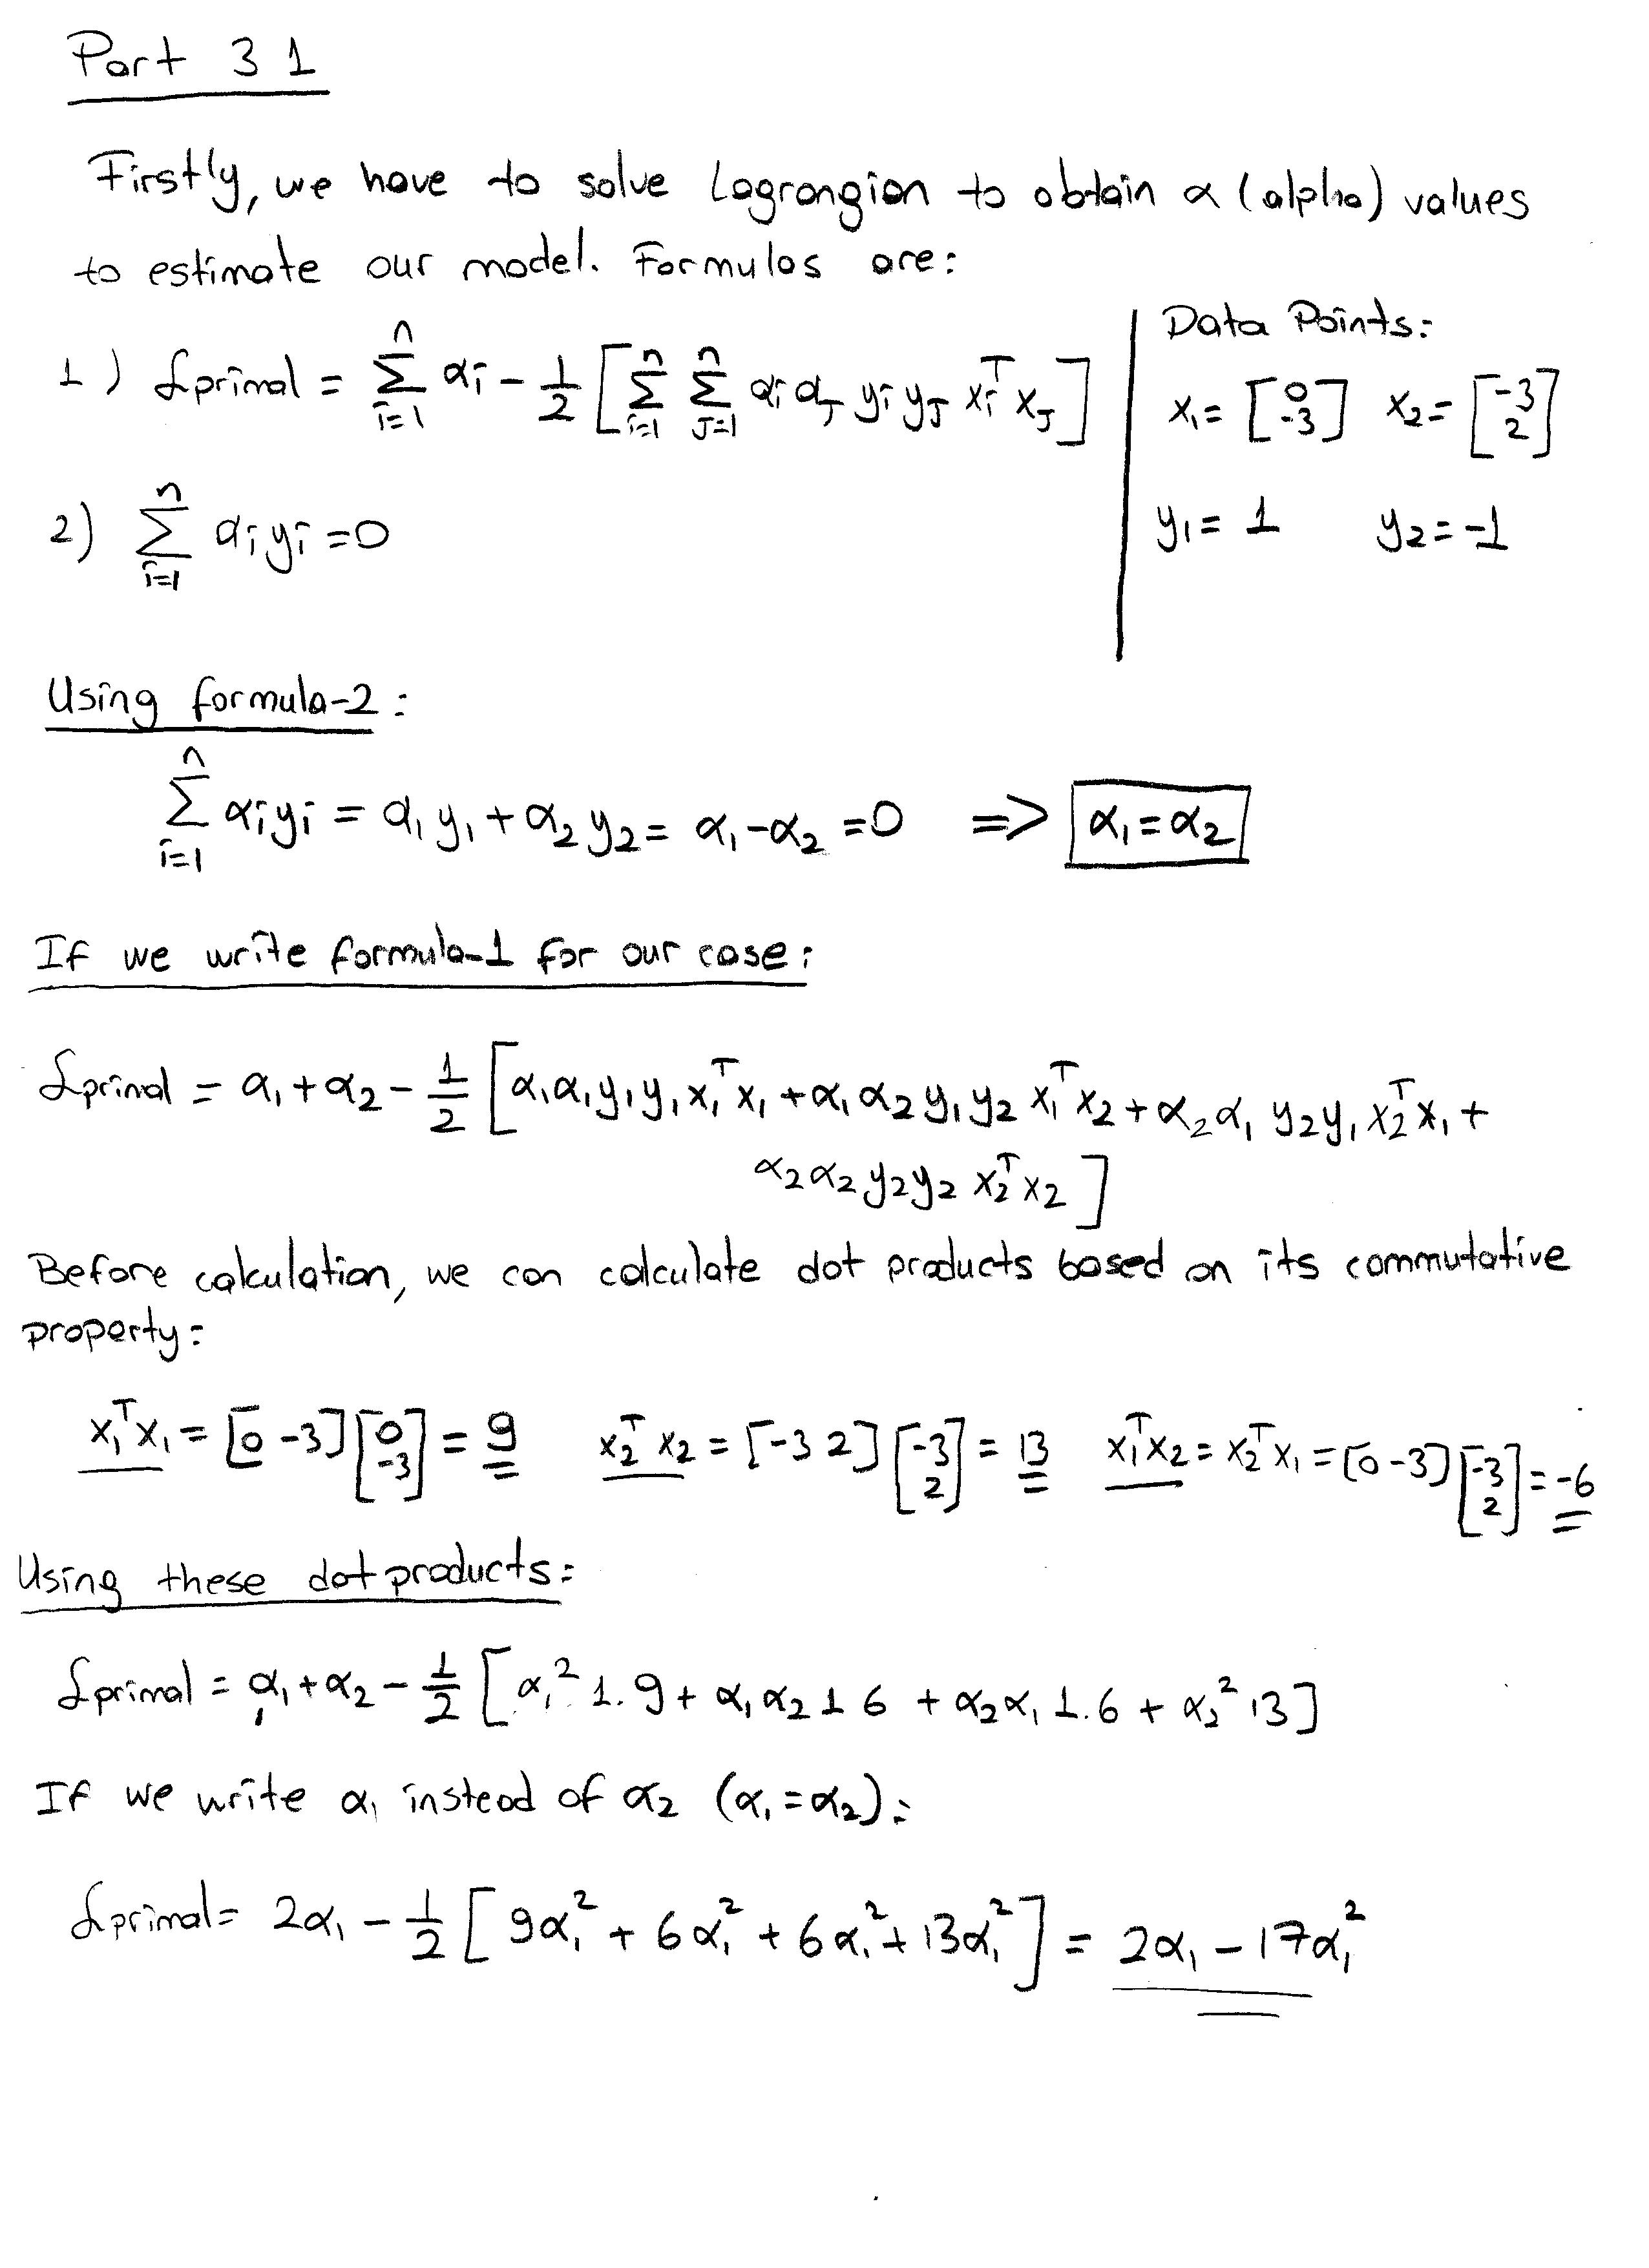 Part 3 1
Firstly, we have to solve Lagrangian to obtain α (alpha) values
to estimate our model. Formulas are:
1) ℒprimal = Σ_{i=1}^{n} αi - 1/2 [Σ_{i=1}^{n} Σ_{J=1}^{n} αi αJ yi yJ xi^T xJ]
2) Σ_{i=1}^{n} αi yi = 0
Data Points:
x1 = [0 -3] x2 = [-3 2]
y1 = 1 y2 = -1
Using formula-2:
Σ_{i=1}^{n} αi yi = α1 y1 + α2 y2 = α1 - α2 = 0 => α1 = α2
If we write formula-1 for our case:
ℒprimal = α1 + α2 - 1/2 [α1 α1 y1 y1 x1^T x1 + α1 α2 y1 y2 x1^T x2 + α2 α1 y2 y1 x2^T x1 +
α2 α2 y2 y2 x2^T x2]
Before calculation, we can calculate dot products based on its commutative
property:
x1^T x1 = [0 -3] [0 -3] = 9 x2^T x2 = [-3 2] [-3 2] = 13 x1^T x2 = x2^T x1 = [0 -3] [-3 2] = -6
Using these dot products:
ℒprimal = α1 + α2 - 1/2 [α1^2 1.9 + α1 α2 1 6 + α2 α1 1.6 + α2^2 13]
If we write α1 instead of α2 (α1 = α2):
ℒprimal = 2α1 - 1/2 [9α1^2 + 6α1^2 + 6α1^2 + 13α1^2] = 2α1 - 17α1^2